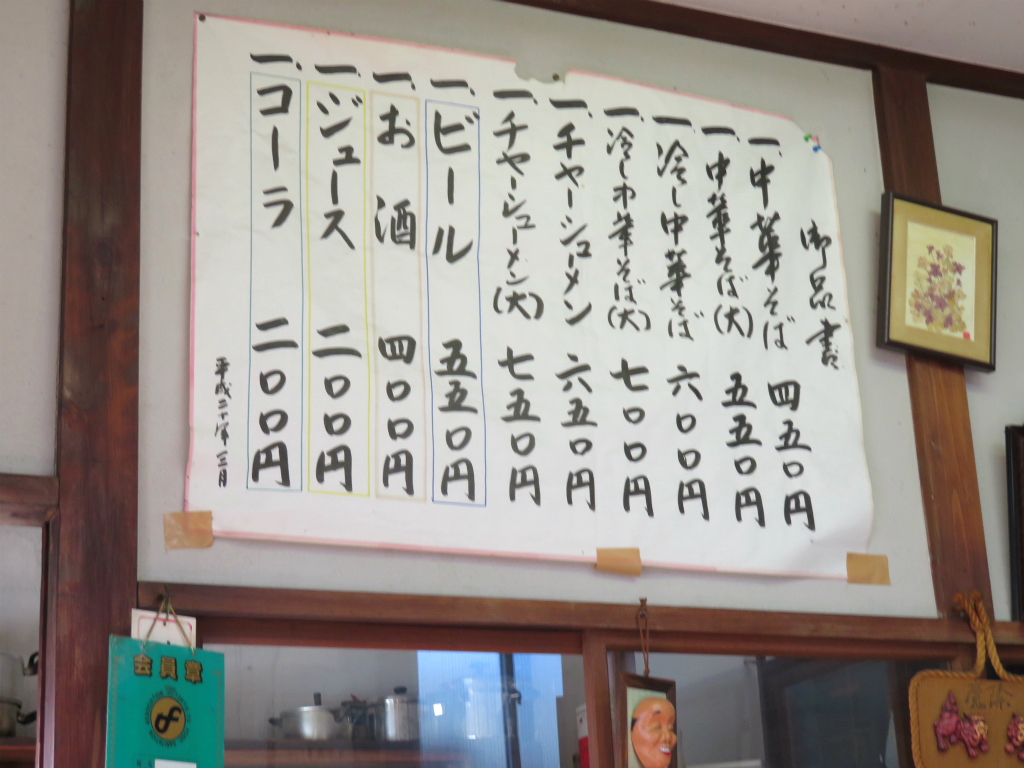 御品書
一、中華そば 四五〇円
一、中華そば(大) 五五〇円
一、冷し中華そば 六〇〇円
一、冷し中華そば(大) 七〇〇円
一、チャーシューメン 六五〇円
一、チャーシューメン(大) 七五〇円
一、ビール 五五〇円
一、お酒 四〇〇円
一、ジュース 二〇〇円
一、コーラ 二〇〇円
会員章